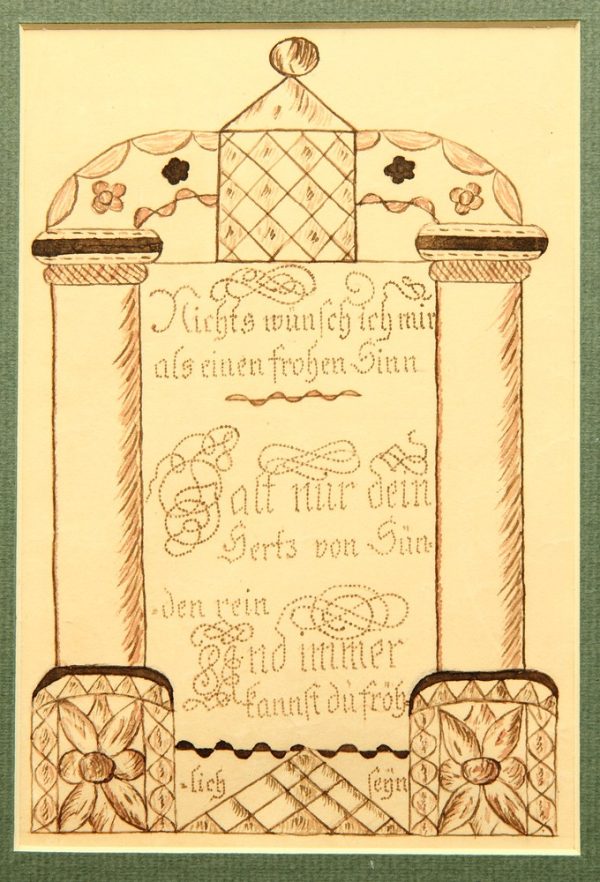 Nichts wünsch ich mir
als einen frohen Sinn
Halt nur dein
Herts von Sün-
den rein
Und immer
kannst dü fröh-
-lich seÿn